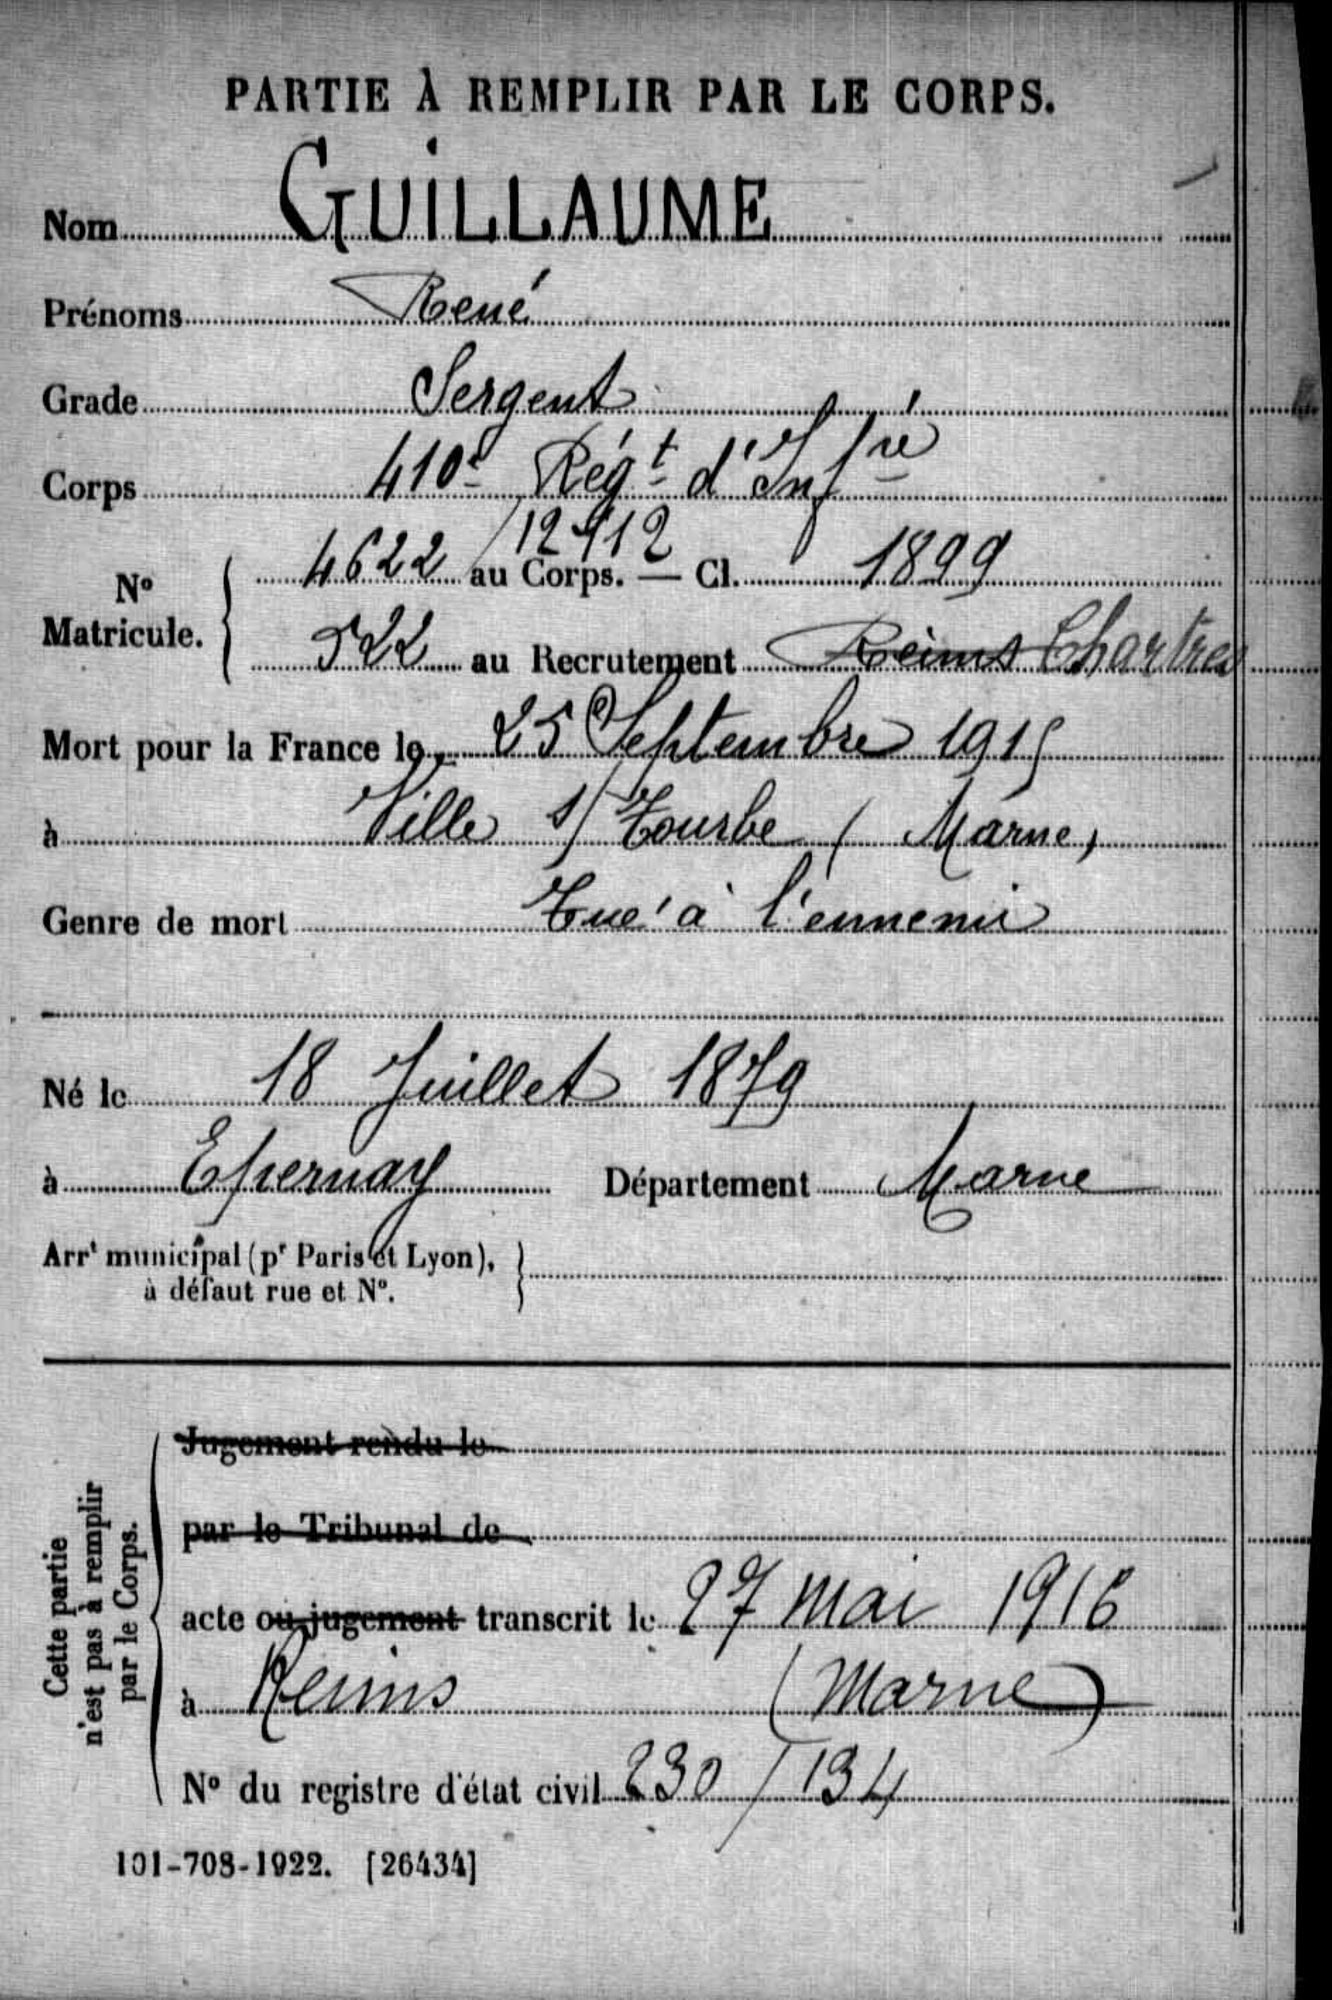 PARTIE À REMPLIR PAR LE CORPS.
Nom GUILLAUME
Prénoms René
Grade Sergent
Corps 410e Régt d'Infrie
12912
N° Matricule. { 4622 / au Corps. — Cl. 1899
522 au Recrutement Reims Chartres
Mort pour la France le 25 Septembre 1915
à Ville s/ Tourbe (Marne)
Genre de mort Tué à l'ennemi
Né le 18 Juillet 1879
à Epernay Département Marne
Arrt municipal (pr Paris et Lyon),
à défaut rue et N°.
Cette partie
n'est pas à remplir
par le Corps.
Jugement rendu le
par le Tribunal de
acte ou jugement transcrit le 27 mai 1916
à Reims (Marne)
N° du registre d'état civil 230 / 134
101-708-1922. [26434]